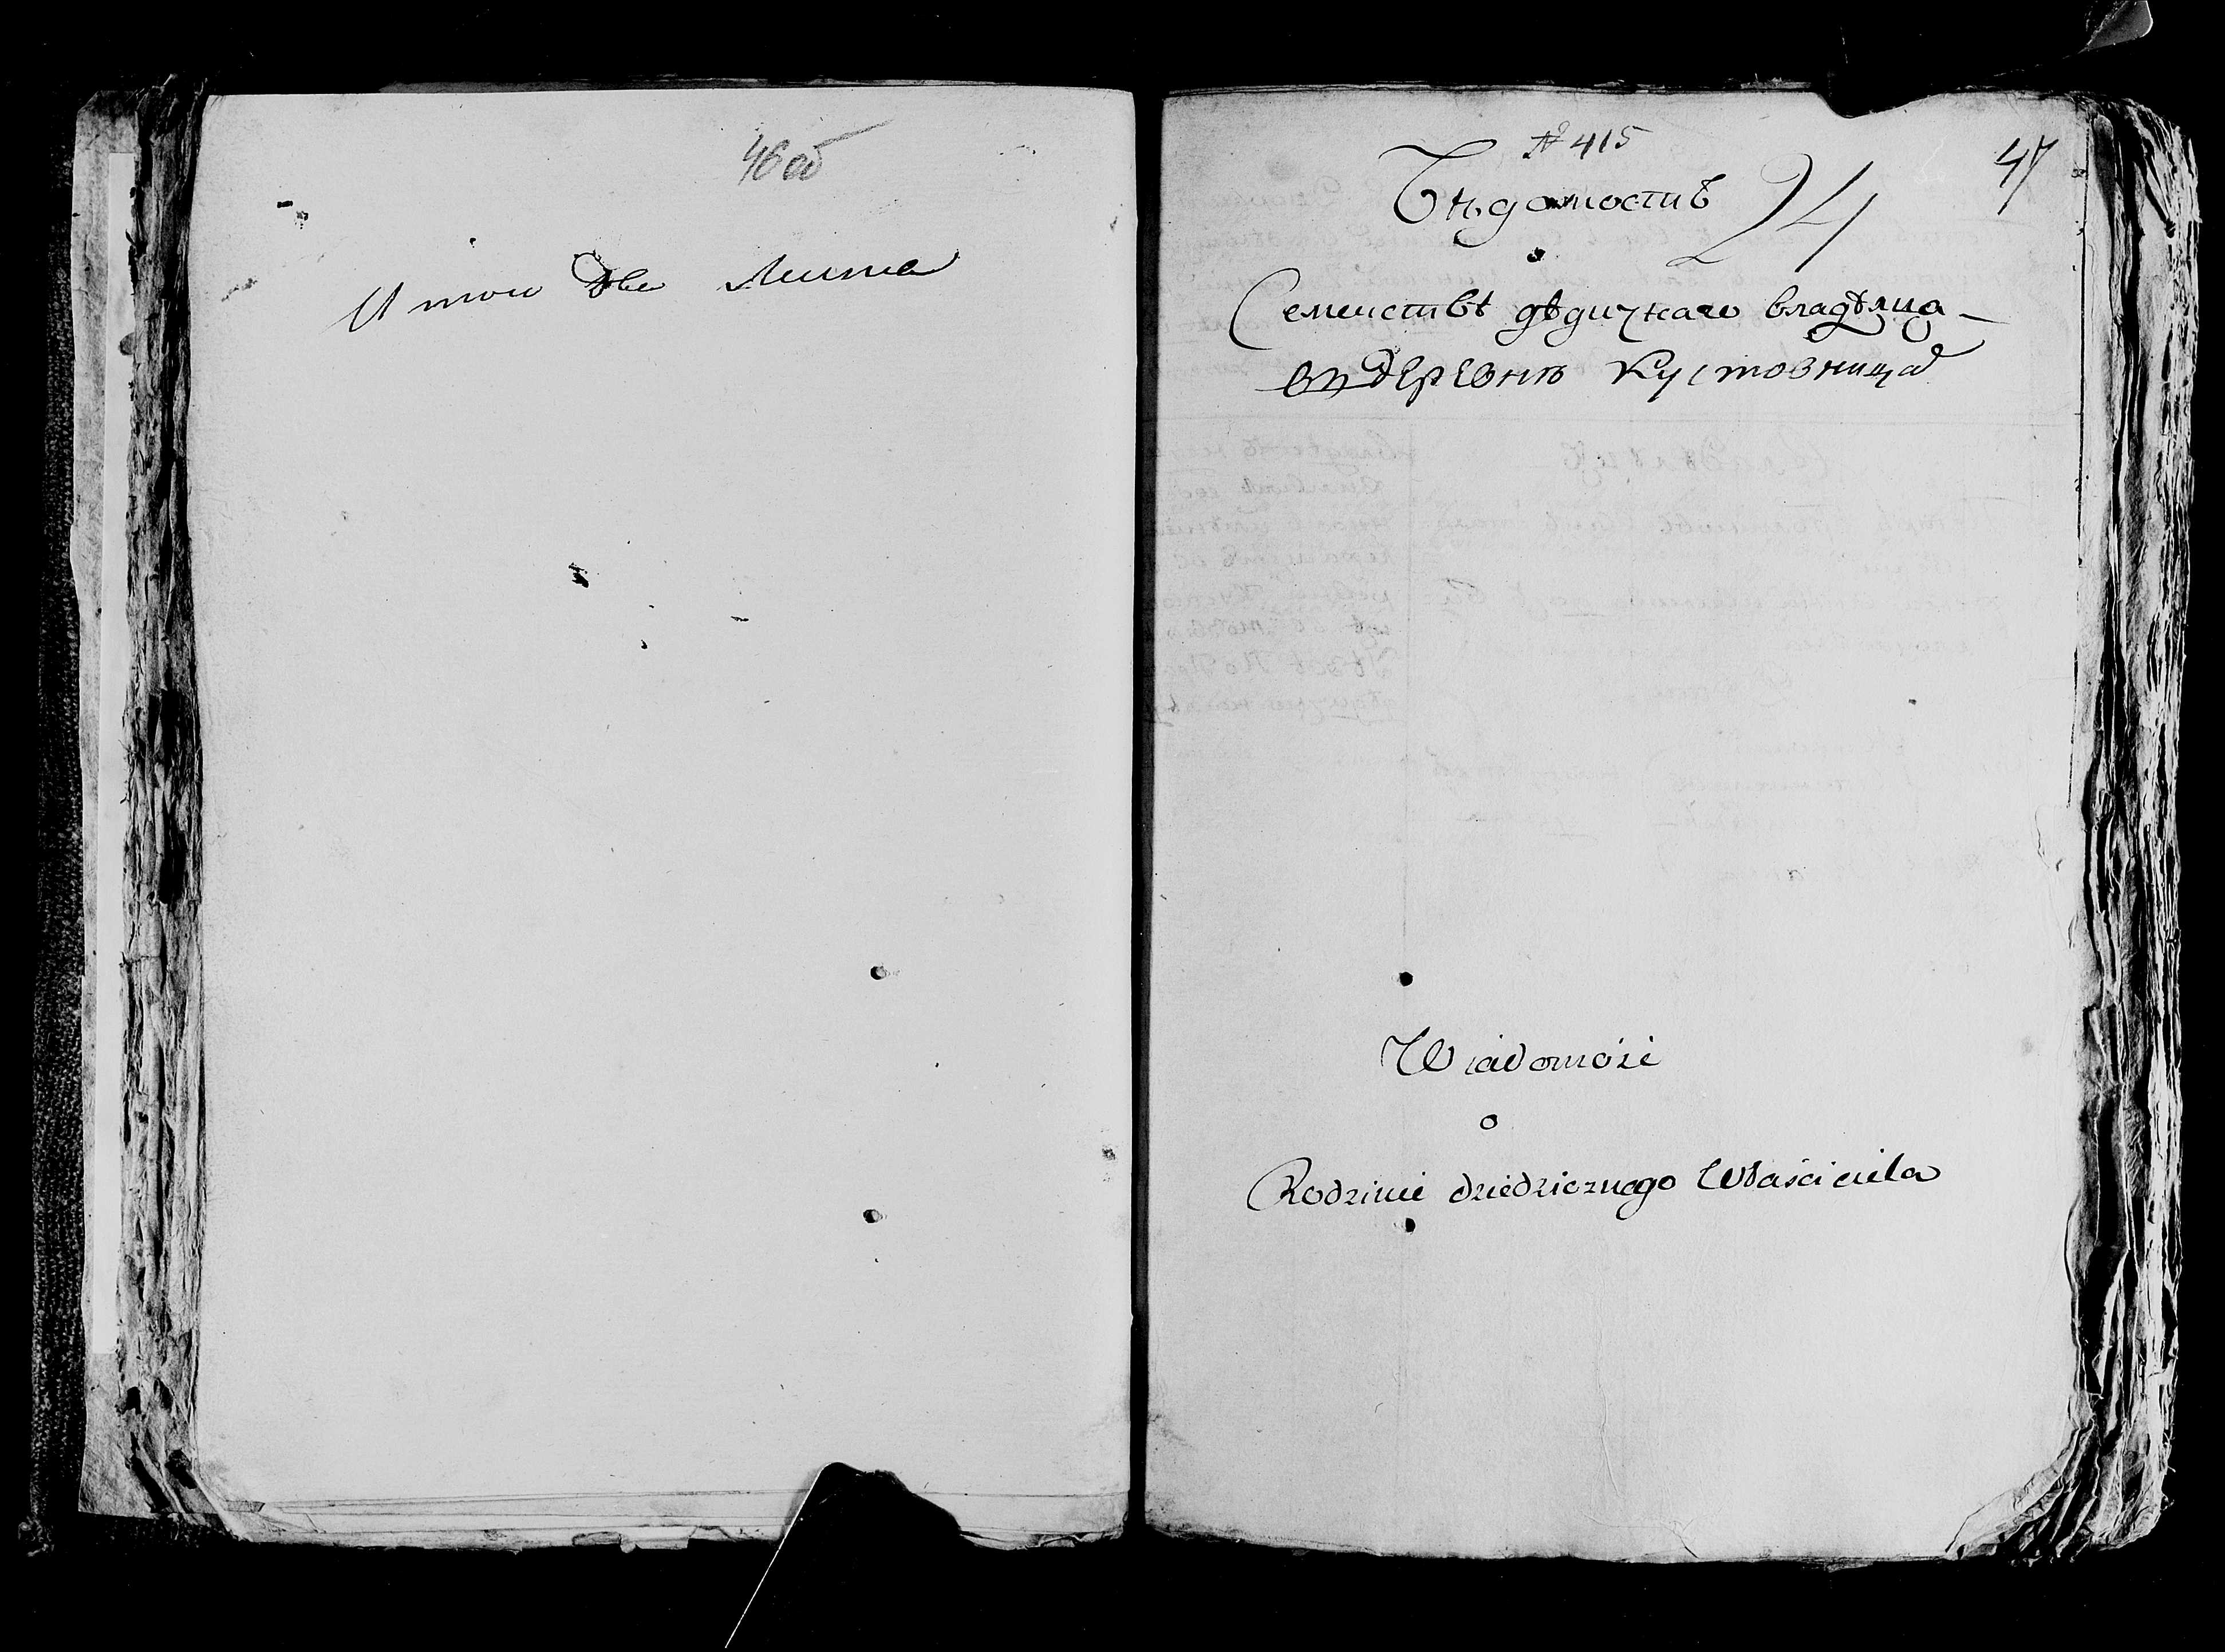 46 об
Итои две Листа
№ 415
47
Вѣдомость 24
о
Семействѣ дѣдичнаго владѣлца
въ деревнѣ Кустовница
Wiadomość
o
Rodzinie dziedzicznego Właściciela